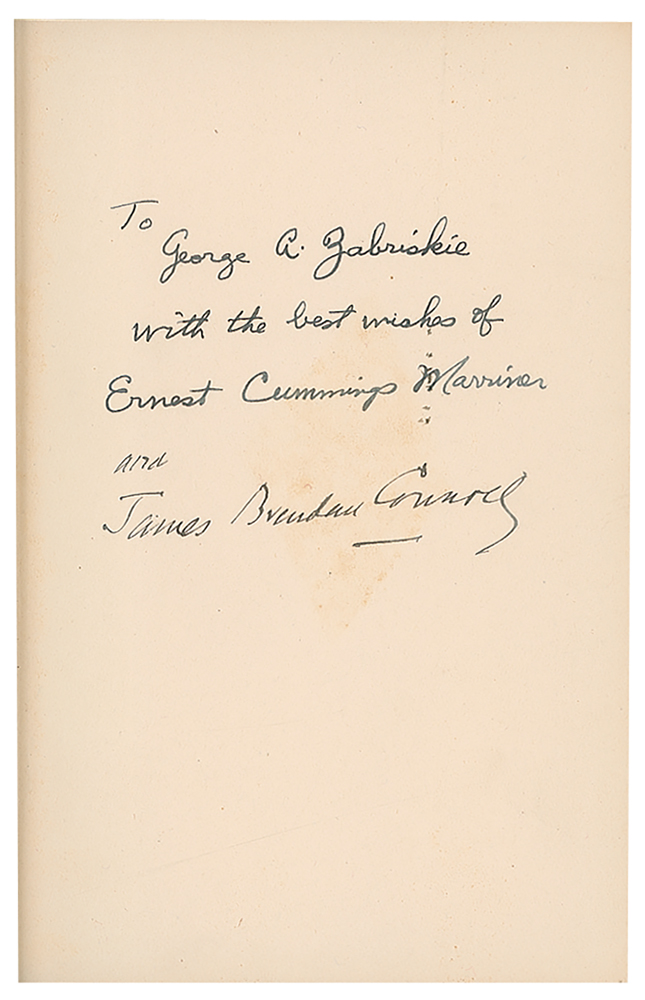 To
George A. Zabriskie
with the best wishes of
Ernest Cummings Marriner
and
James Brendan Connolly